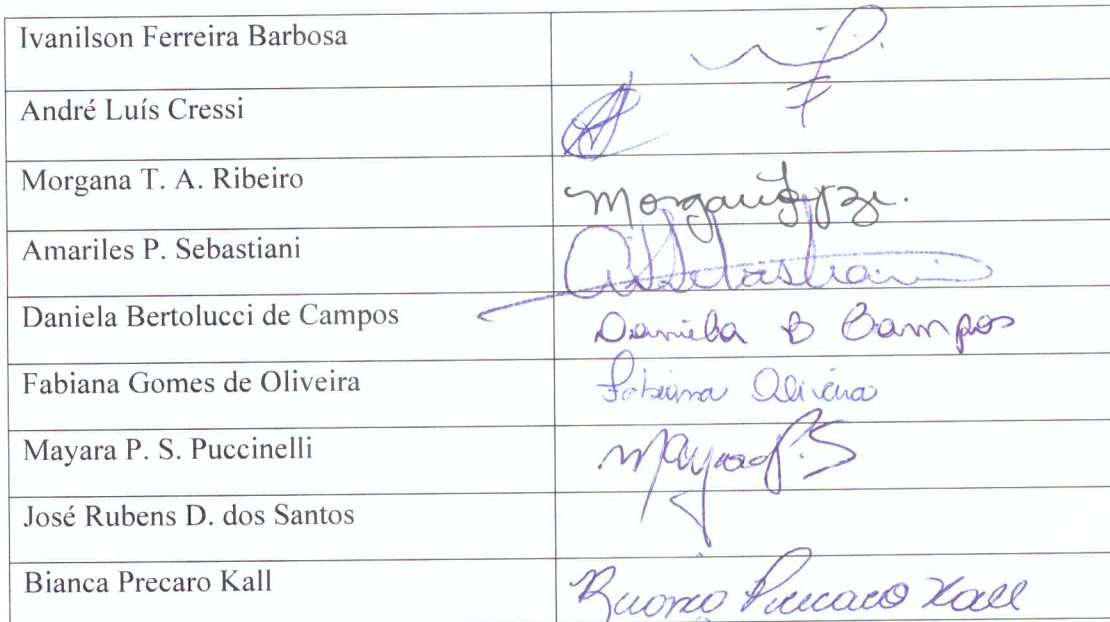 Ivanilson Ferreira Barbosa
André Luís Cressi
Morgana T. A. Ribeiro
Amariles P. Sebastiani
Daniela Bertolucci de Campos
Daniela B Campos
Fabiana Gomes de Oliveira
Fabiana Oliveira
Mayara P. S. Puccinelli
Mayara P.S
José Rubens D. dos Santos
Bianca Precaro Kall
Bianca Precaro Kall